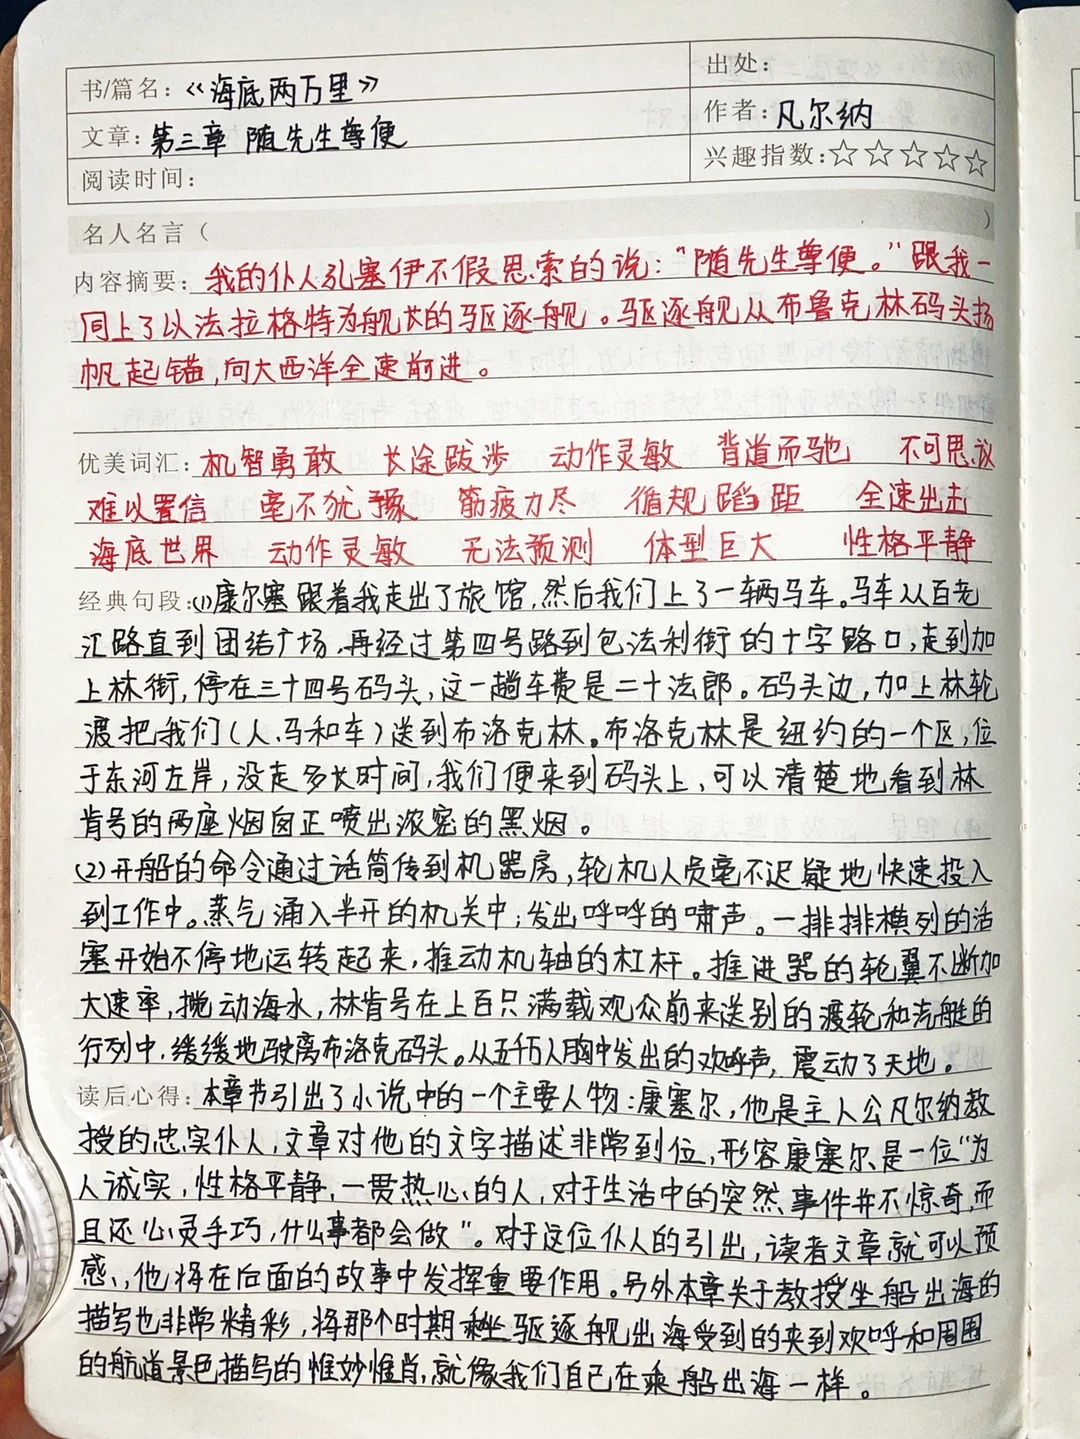 书/篇名：《海底两万里》
出处：
文章：第三章 随先生尊便
作者：凡尔纳
阅读时间：
兴趣指数：☆☆☆☆☆
名人名言（ ）
内容摘要：我的仆人孔塞伊不假思索的说：“随先生尊便。”跟我一
同上了以法拉格特为舰长的驱逐舰。驱逐舰从布鲁克林码头扬
帆起锚，向大西洋全速前进。
优美词汇：机智勇敢 长途跋涉 动作灵敏 背道而驰 不可思议
难以置信 毫不犹豫 筋疲力尽 循规蹈距 全速出击
海底世界 动作灵敏 无法预测 体型巨大 性格平静
经典句段：(1)康尔塞跟着我走出了旅馆，然后我们上了一辆马车。马车从百老
汇路直到团结广场，再经过第四号路到包法利街的十字路口，走到加
上林街，停在三十四号码头，这一趟车费是二十法郎。码头边，加上林轮
渡把我们（人、马和车）送到布洛克林。布洛克林是纽约的一个区，位
于东河左岸，没走多长时间，我们便来到码头上，可以清楚地看到林
肯号的两座烟囱正喷出浓密的黑烟。
(2)开船的命令通过话筒传到机器房，轮机人员毫不迟疑地快速投入
到工作中。蒸气涌入半开的机关中；发出呼呼的啸声。一排排横列的活
塞开始不停地运转起来，推动机轴的杠杆。推进器的轮翼不断加
大速率，搅动海水，林肯号在上百只满载观众前来送别的渡轮和汽艇的
行列中，缓缓地驶离布洛克码头。从五千万人胸中发出的欢呼声，震动了天地。
读后心得：本章节引出了小说中的一个主要人物：康塞尔，他是主人公凡尔纳教
授的忠实仆人，文章对他的文字描述非常到位，形容康塞尔是一位“为
人诚实，性格平静，一贯热心的人，对于生活中的突然事件并不惊奇，而
且还心灵手巧，什么事都会做”。对于这位仆人的引出，读者文章就可以预
感，他将在后面的故事中发挥重要作用。另外本章关于教授坐船出海的
描写也非常精彩，将那个时期乘坐驱逐舰出海受到的夹到欢呼和周围
的航道景色描写的惟妙惟肖，就像我们自己在乘船出海一样。